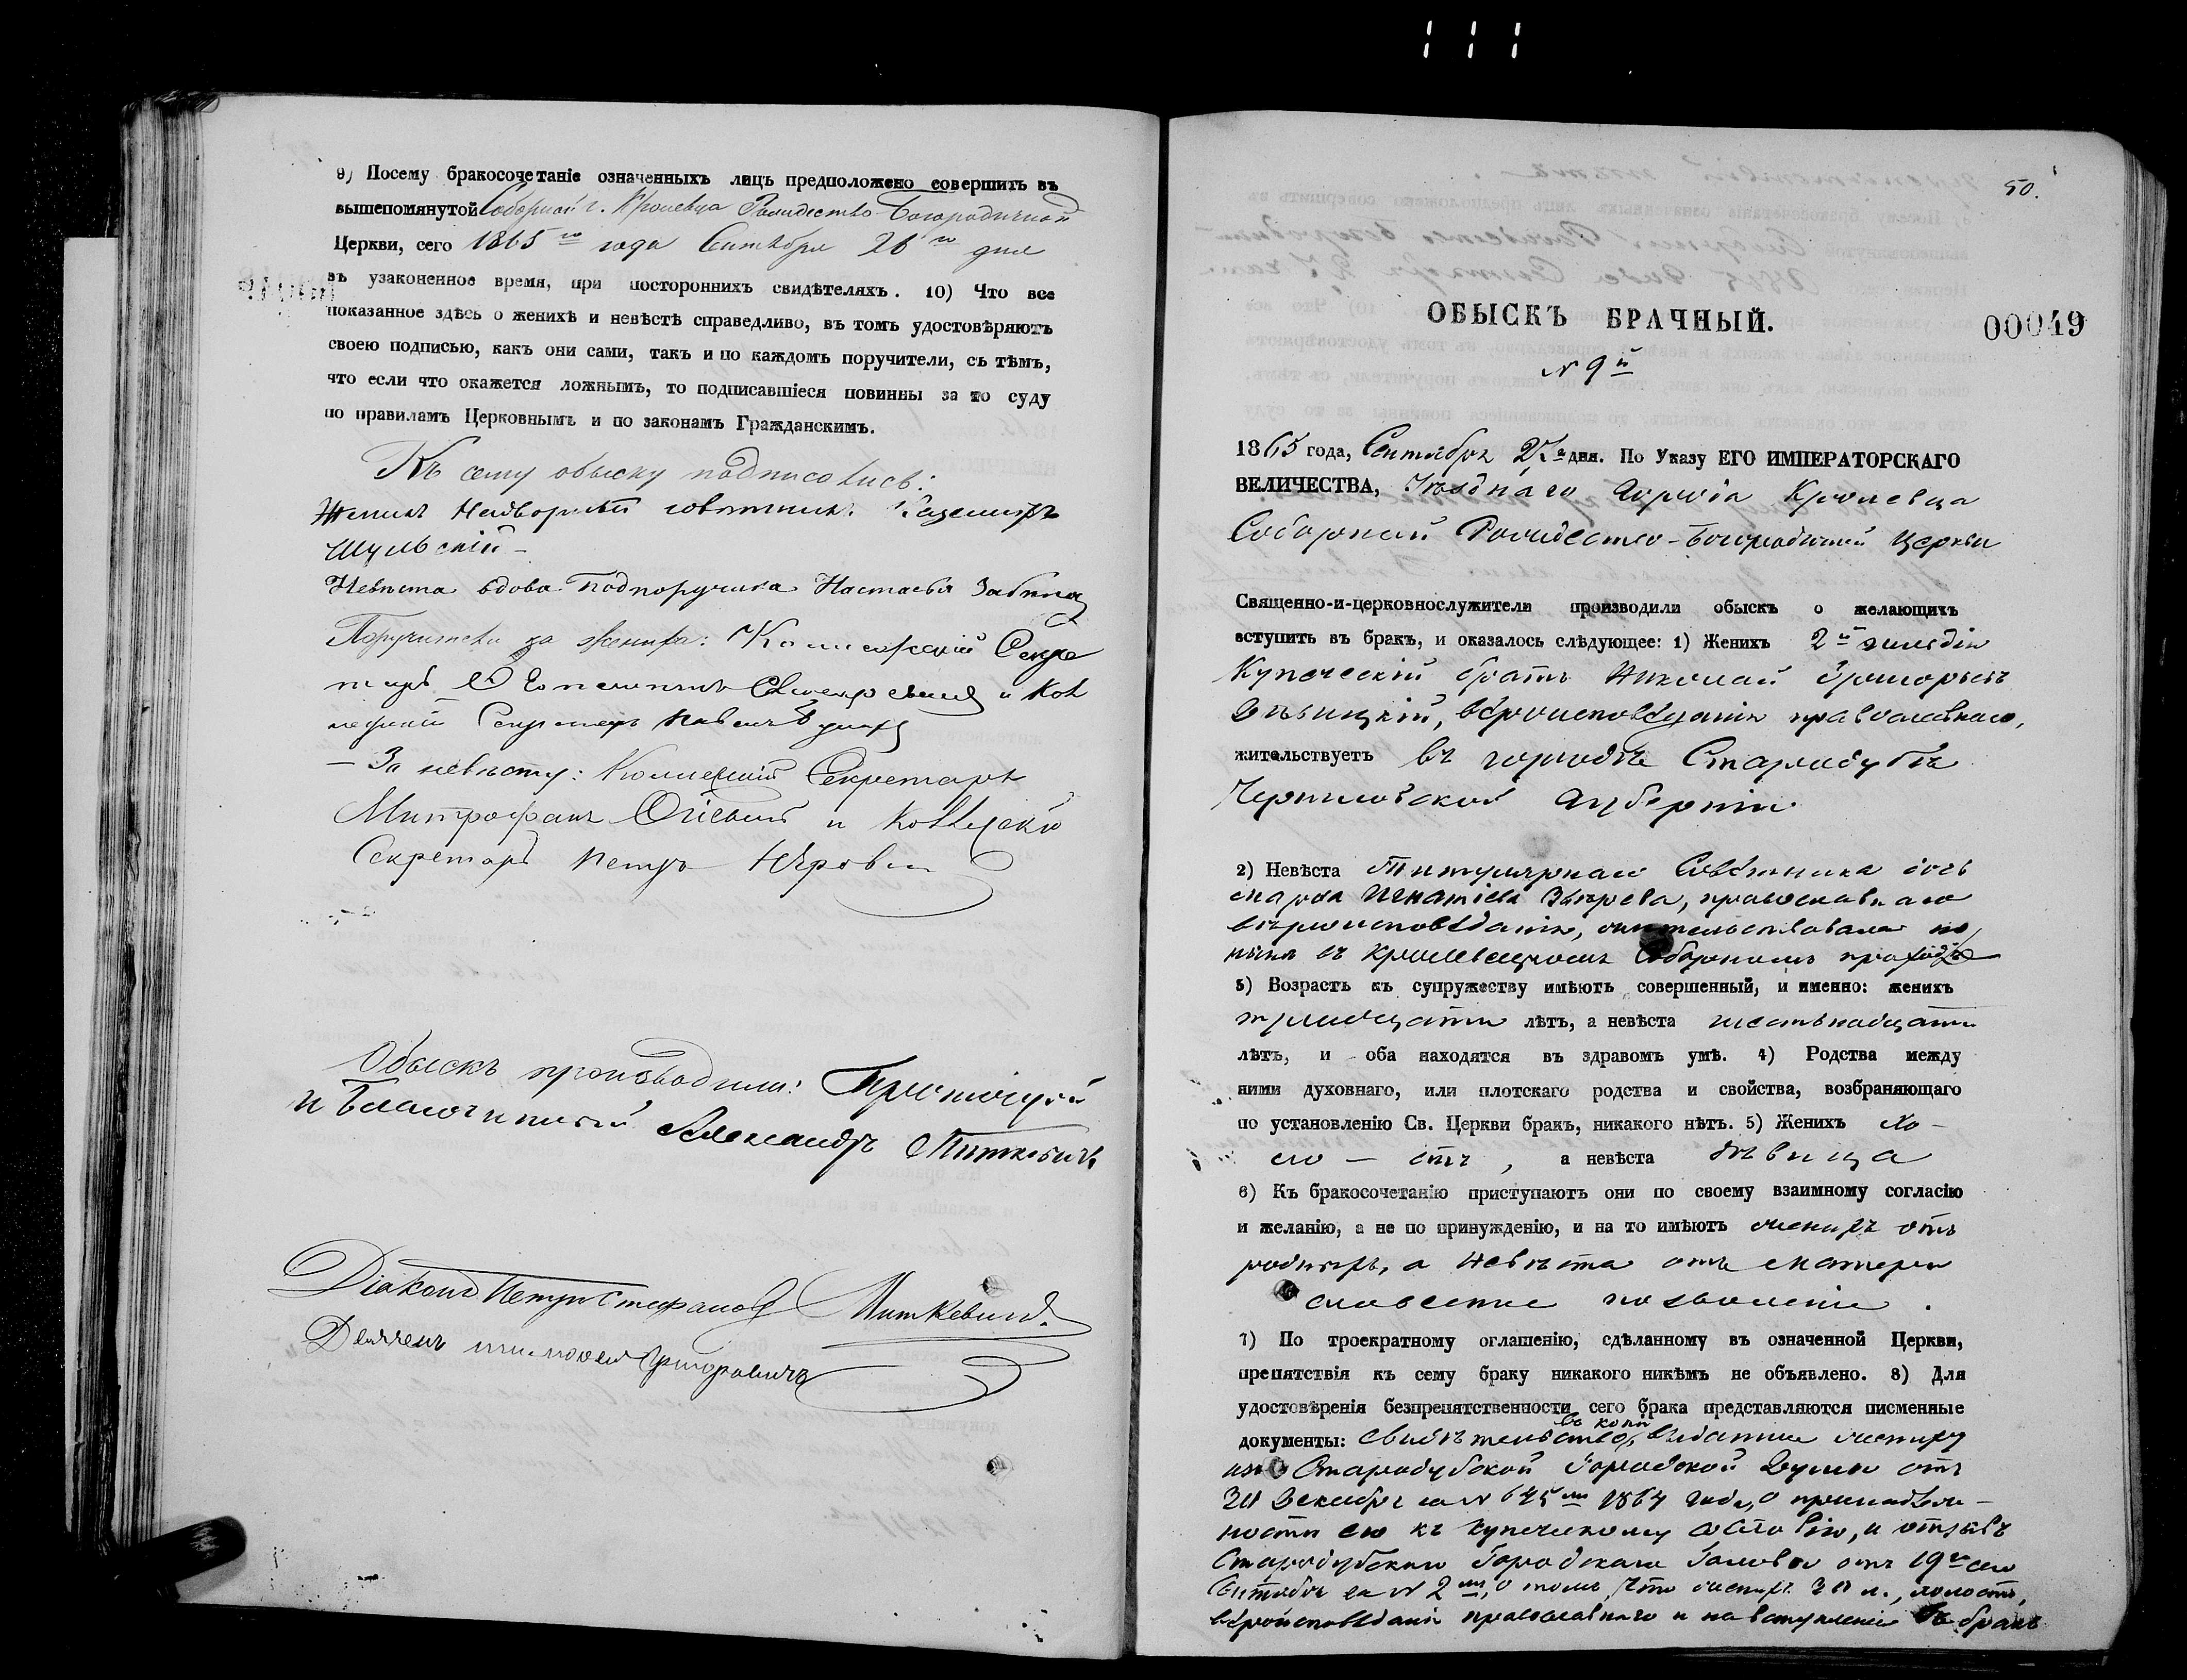 9) Посему бракосочетаніе означенныхъ лицъ предположено совершить въ
вышепомянутой Соборной г. Кролевца Рождество-Богородичной
Церкви, сего 1865 го года Сентября 26 го дня
въ узаконенное время, при постороннихъ свидѣтеляхъ. 10) Что все
показанное здѣсь о женихѣ и невѣстѣ справедливо, въ томъ удостовѣряютъ
своею подписью, какъ они сами, такъ и по каждомъ поручители, съ тѣмъ,
что если что окажется ложнымъ, то подписавшіеся повинны за то суду
по правиламъ Церковнымъ и по законамъ Гражданскимъ.
Къ сему обыску подписались:
Женихъ Надворный совѣтникъ Каземиръ
Шульскій
Невѣста вдова Подпоручика Настасья
Поручители за жениха: Коллежскій Секре
таръ и Кол
лежскій Секретарь Павелъ
За невѣсту: Коллежскій Секретарь
Митрофанъ и Коллежскій
Секретарь Петръ
Обыскъ производили: Протоіерей
и Благочинный Александръ Миткевичъ
Діаконъ Петръ Стефановъ Миткевичъ.
Григоровичъ
50.
00049
ОБЫСКЪ БРАЧНЫЙ.
N 9 й
1865 года, Сентября дня. По Указу ЕГО ИМПЕРАТОРСКАГО
ВЕЛИЧЕСТВА, Уѣзднаго города Кролевца
Соборной Рождество-Богородичной церкви
Священно-и-церковнослужители производили обыскъ о желающихъ
вступить въ бракъ, и оказалось слѣдующее: 1) Женихъ 2 й гильдіи
Купеческій братъ Николай Григорьевъ
вѣроисповѣданія православнаго,
жительствуетъ въ городѣ Стародубѣ
Черниговской Губерніи
2) Невѣста Титулярнаго Совѣтника дочь
Марья Игнатіева Звѣрева, православнаго
вѣроисповѣданія, жительствовала по
нынѣ въ Кролевецкомъ Соборномъ приходѣ
3) Возрастъ къ супружеству имѣютъ совершенный, и именно: женихъ
тридцати лѣтъ, а невѣста шестьнадцати
лѣтъ, и оба находятся въ здравомъ умѣ. 4) Родства между
ними духовнаго, или плотскаго родства и свойства, возбраняющаго
по установленію Св. Церкви бракъ, никакого нѣтъ. 5) Женихъ хо-
ло-стъ, а невѣста дѣвица
6) Къ бракосочетанію приступаютъ они по своему взаимному согласію
и желанію, а не по принужденію, и на то имѣютъ женихъ отъ
родныхъ, а невѣста отъ матери
словесное позволеніе.
7) По троекратному оглашенію, сдѣланному въ означенной Церкви,
препятствія къ сему браку никакого никѣмъ не объявлено. 8) Для
удостовѣренія безпрепятственности сего брака представляются писменные
въ копіи
документы: Свидѣтельство, выданное жениху
изъ Стародубской Городской Думы отъ
30 Декабря за N 645 мъ 1864 года, о принадлеж-
ности его къ купеческому сословію, и отзывъ
Стародубскаго Городскаго Головы отъ 19 го сего
Сентября за N 2 мъ, о томъ, что женихъ 30 л., холостъ,
вѣроисповѣданія православнаго и на вступленіе въ бракъ